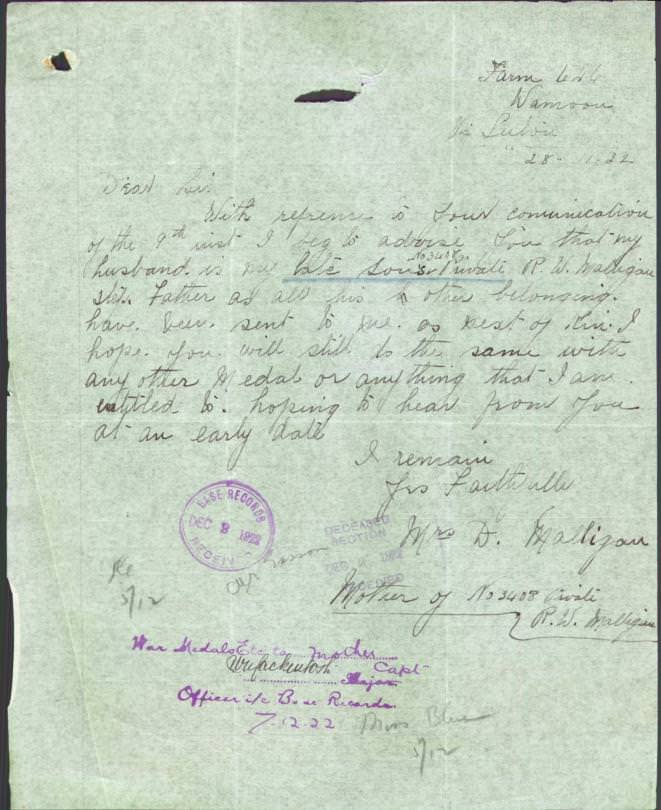 Farm
Wamoon
Via Leeton
28-11-22
Dear Sir
With refrence to your comunication
of the 9th inst I beg to advise you that my
husband is my late son's No 3408 Private R. W. Malligan
step Father as all his other belonging
have been sent to me as next of kin I
hope you will still do the same with
any other Medal or anything that I am
entitled to. hoping to hear from you
at an early date
I remain
yrs Faithfully
Mrs D. Malligan
Mother of No 3408 Private
R. W. Malligan
BASE RECORDS
DEC 1922
DECEASED
SECTION
DEC 1922
5/12
War Medals Etc to mother
Capt
Major
Officer i/c Base Records
7.12.22
Miss
5/12